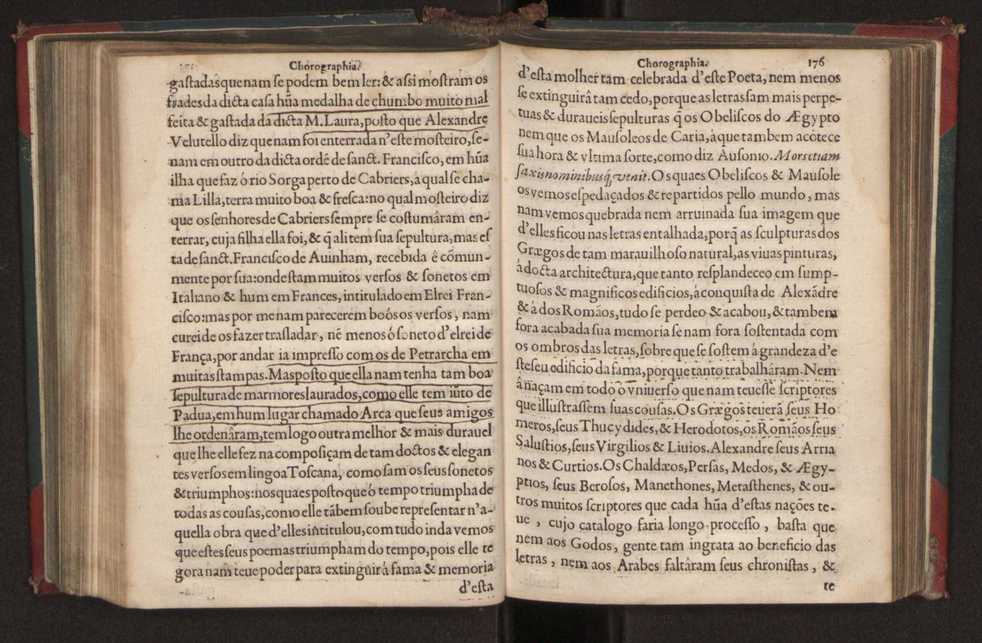 Chorographia.
gastadas que nam se podem bem ler: & assi mostram os
frades da dicta casa hũa medalha de chumbo muito mal
feita & gastada da dicta M. Laura, posto que Alexandre
Velutello diz que nam foi enterrada n'este mosteiro, se-
nam em outro da dicta ordẽ de sanct. Francisco, em hũa
ilha que faz ó rio Sorga perto de Cabriers, á qual se cha-
ma Lilla, terra muito boa & fresca: no qual mosteiro diz
que os senhores de Cabriers sempre se costumâram en-
terrar, cuja filha ella foi, & q̃ ali tem sua sepultura, mas es
ta de sanct. Francisco de Auinham, recebida ê cõmun-
mente por sua: onde stam muitos versos & sonetos em
Italiano & hum em Frances, intitulado em Elrei Fran-
cisco: mas por me nam parecerem boõs os versos, nam
curei de os fazer trasladar, nẽ menos ó soneto d'elrei de
França, por andar ia impresso com os de Petrarcha em
muitas stampas. Mas posto que ella nam tenha tam boa
sepultura de marmores laurados, como elle tem iũto de
Padua, em hum lugar chamado Arca que seus amigos
lhe ordenâram, tem logo outra melhor & mais durauel
que lhe elle fez na composiçam de tam doctos & elegan
tes versos em lingoa Toscana, como sam os seus sonetos
& triumphos: nos quaes posto que ó tempo triumpha de
todas as cousas, como elle tãbem soube representar n'a-
quella obra que d'elles intitulou, com tudo inda vemos
que estes seus poemas triumpham do tempo, pois elle te
gora nam teue poder para extinguir á fama & memoria
d'esta
Chorographia. 176
d'esta molher tam celebrada d'este Poeta, nem menos
se extinguirâ tam cedo, porque as letras sam mais perpe-
tuas & duraueis sepulturas q̃ os Obeliscos do Ægypto
nem que os Mausoleos de Caria, à que tambem acõtece
sua hora & vltima sorte, como diz Ausonio. Mors etiam
saxis nominibusq; venit. Os quaes Obeliscos & Mausole
os vemos espedaçados & repartidos pello mundo, mas
nam vemos quebrada nem arruinada sua imagem que
d'elles ficou nas letras entalhada, porq̃ as sculpturas dos
Grægos de tam marauilhoso natural, as viuas pinturas,
á docta architectura, que tanto resplandeceo em sump-
tuosos & magnificos edificios, á conquista de Alexãdre
& á dos Romãos, tudo se perdeo & acabou, & tambem
fora acabada sua memoria se nam fora sostentada com
os ombros das letras, sobre que se sostem á grandeza d'e
ste seu edificio da fama, porque tanto trabalhâram. Nem
â naçam em todo ó vniuerso que nam teuesse scriptores
que illustrassem suas cousas. Os Grægos teuerã seus Ho
meros, seus Thucydides, & Herodotos, os Romãos seus
Salustios, seus Virgilios & Liuios. Alexandre seus Arria
nos & Curtios. Os Chaldæos, Persas, Medos, & Ægy-
ptios, seus Berosos, Manethones, Metasthenes, & ou-
tros muitos scriptores que cada hũa d'estas nações te-
ue, cujo catalogo faria longo processo, basta que
nem aos Godos, gente tam ingrata ao beneficio das
letras, nem aos Arabes faltâram seus chronistas, &
te